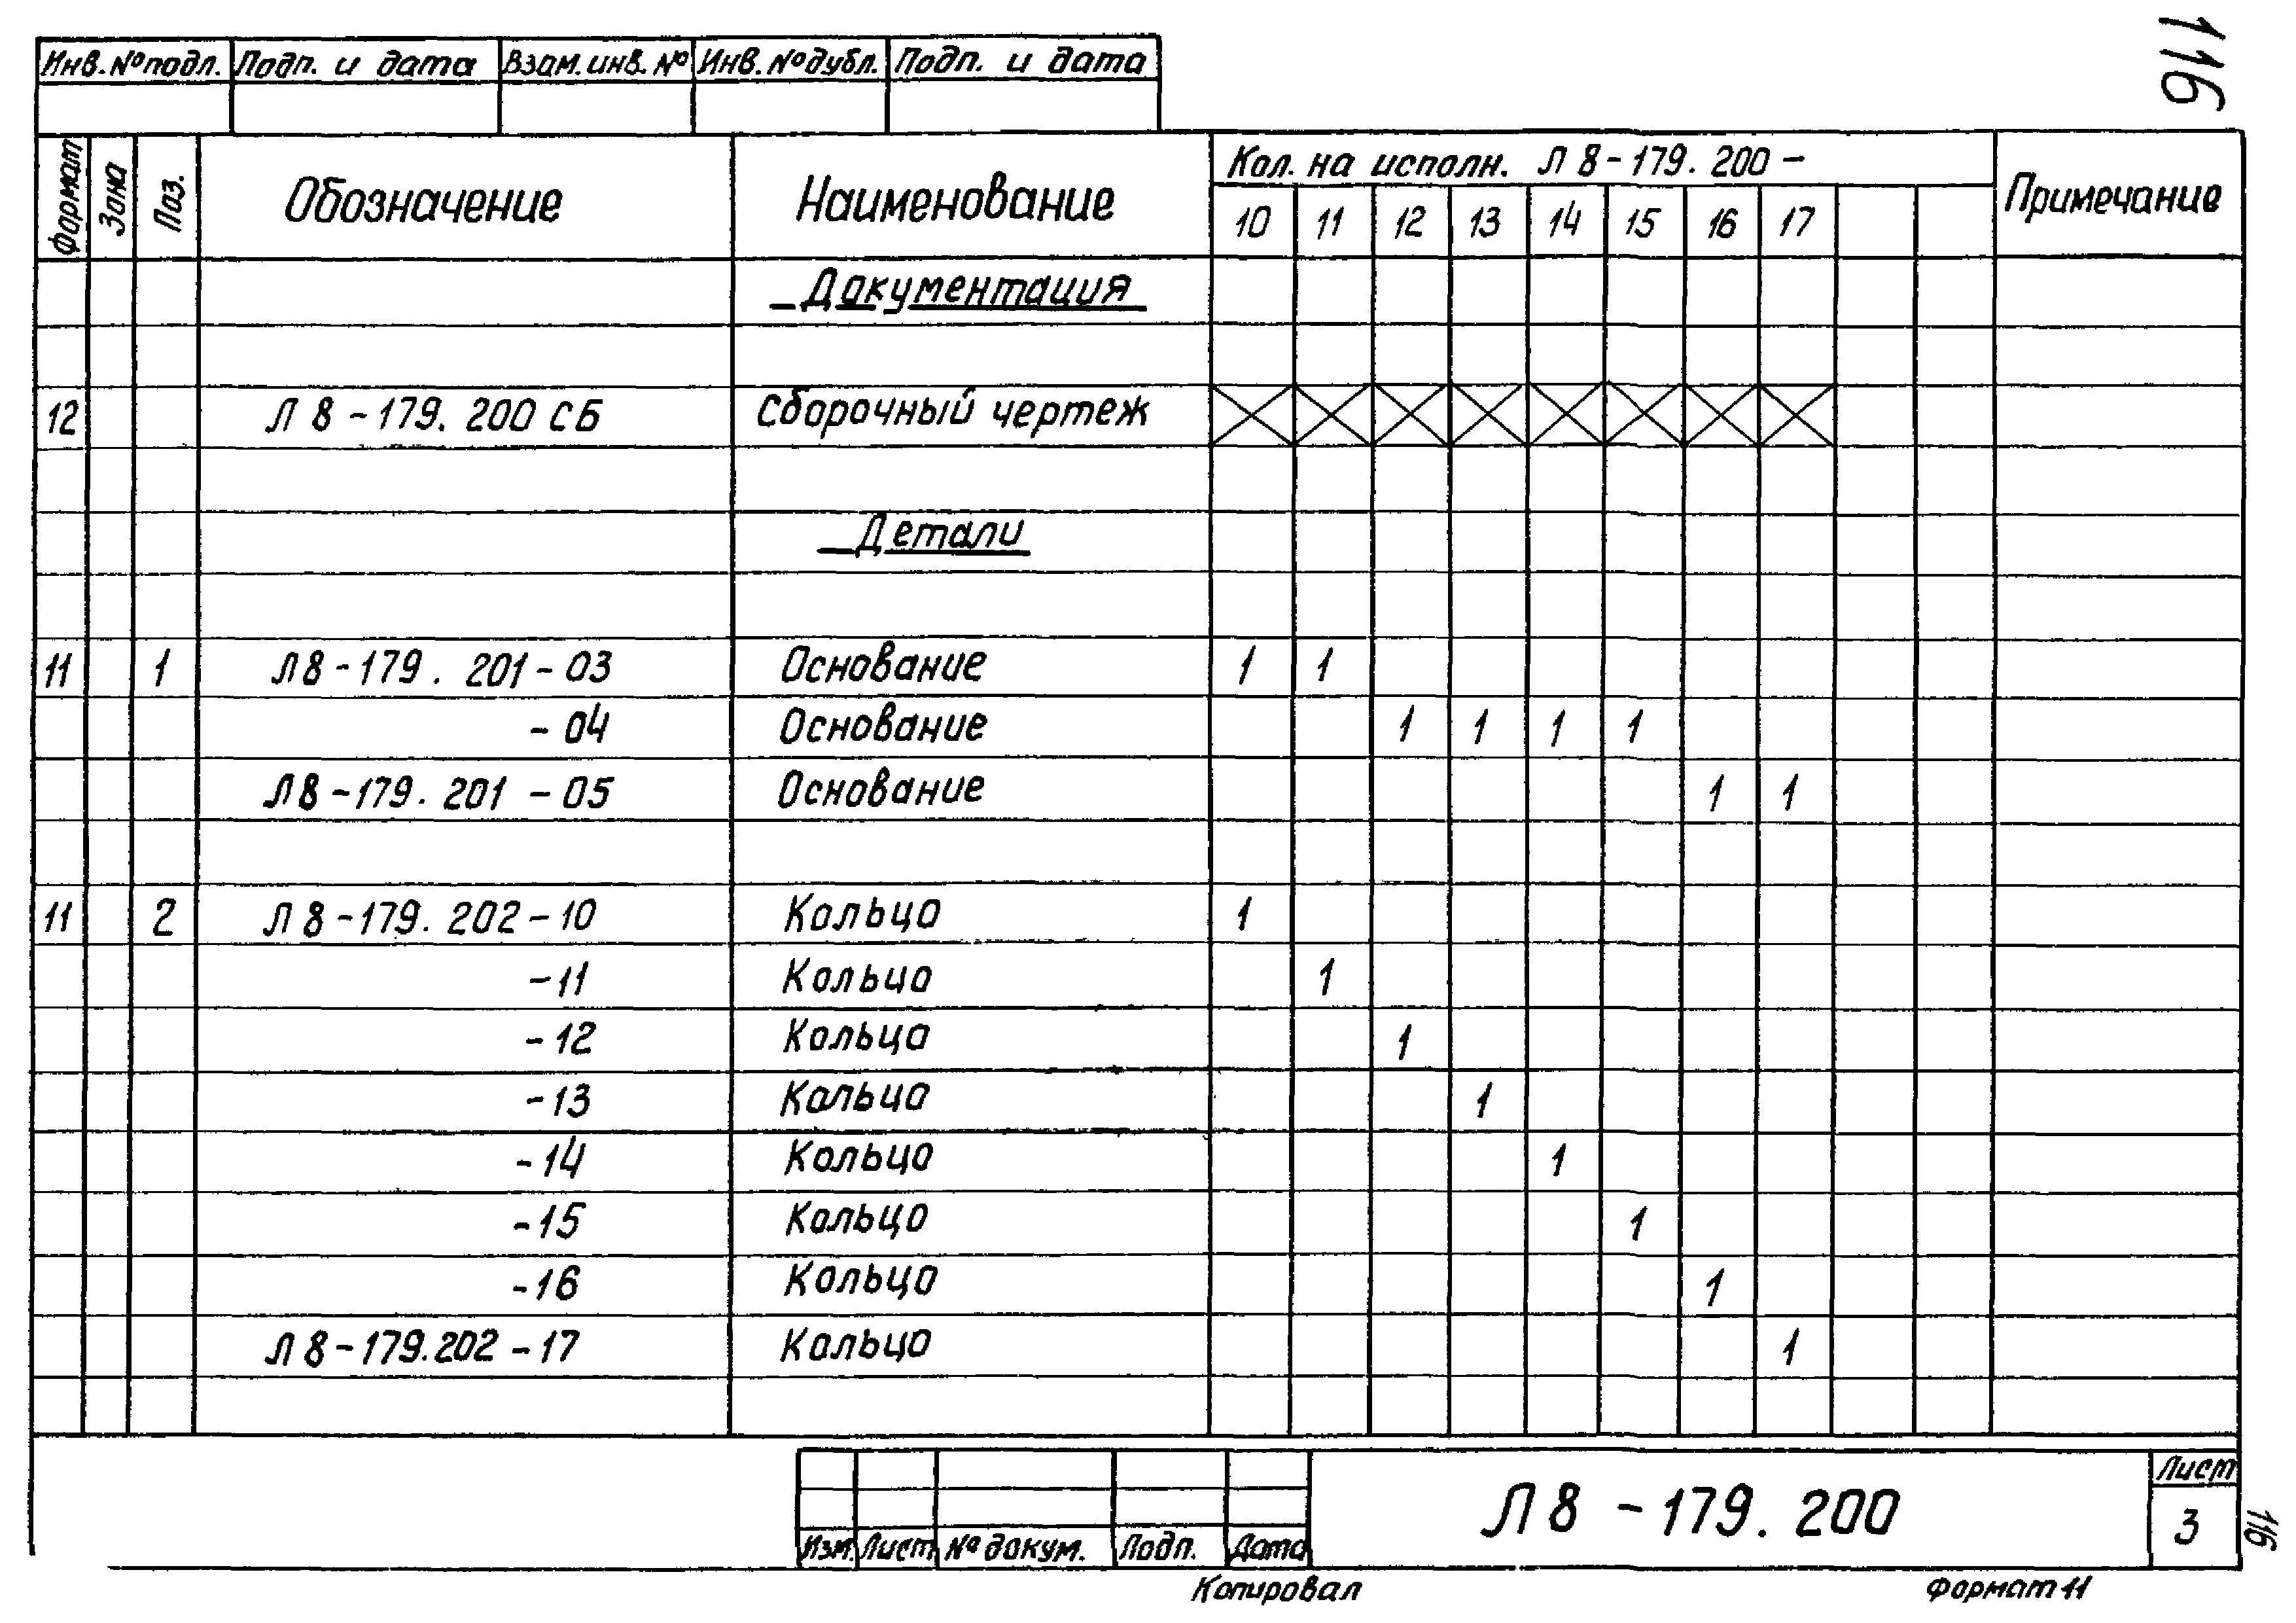 116
Инв. № подл. Подп. и дата Взам. инв. № Инв. № дубл. Подп. и дата
Формат Зона Поз. Обозначение Наименование Кол. на исполн. Л 8-179. 200 - Примечание
10 11 12 13 14 15 16 17
Документация
12 Л 8-179. 200 СБ Сборочный чертеж
Детали
11 1 Л 8-179. 201-03 Основание 1 1
-04 Основание 1 1 1 1
Л 8-179. 201 -05 Основание 1 1
11 2 Л 8-179. 202-10 Кольцо 1
-11 Кольцо 1
-12 Кольцо 1
-13 Кольцо 1
-14 Кольцо 1
-15 Кольцо 1
-16 Кольцо 1
Л 8-179.202 -17 Кольцо 1
Изм. Лист № докум. Подп. Дата
Л 8 -179. 200
Лист
3
116
Копировал Формат 11